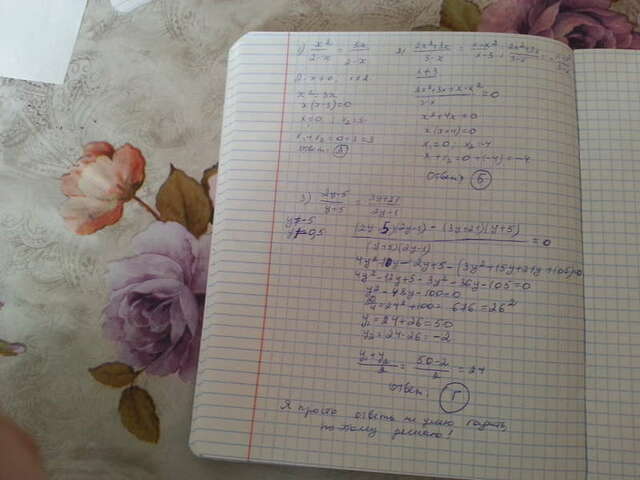 1) x²/(2-x) = 3x/(2-x)
2-x≠0, x≠2
x²=3x
x(x-3)=0
x=0; x₂=3
x₁+x₂=0+3=3
Ответ:
2)
x≠3
=0
x²+4x=0
x(x+4)=0
x=0, x₂=-4
x₁+x₂=0+(-4)=-4
Ответ: Б
3) (2y-5)/(y+5) = (3y+21)/(2y-1)
y≠-5
y≠0,5
((2y-5)(2y-1)-(3y+21)(y+5))/((y+5)(2y-1)) =0
4y²-10y-2y+5-(3y²+15y+21y+105)=0
4y²-12y+5-3y²-36y-105=0
y²-48y-100=0
=24²+100=676=26²
y₁=24+26=50
y₂=24-26=-2
(y₁+y₂)/2 = (50-2)/2 = 24
Ответ: Г
Я просто ответы не умею
решаю!